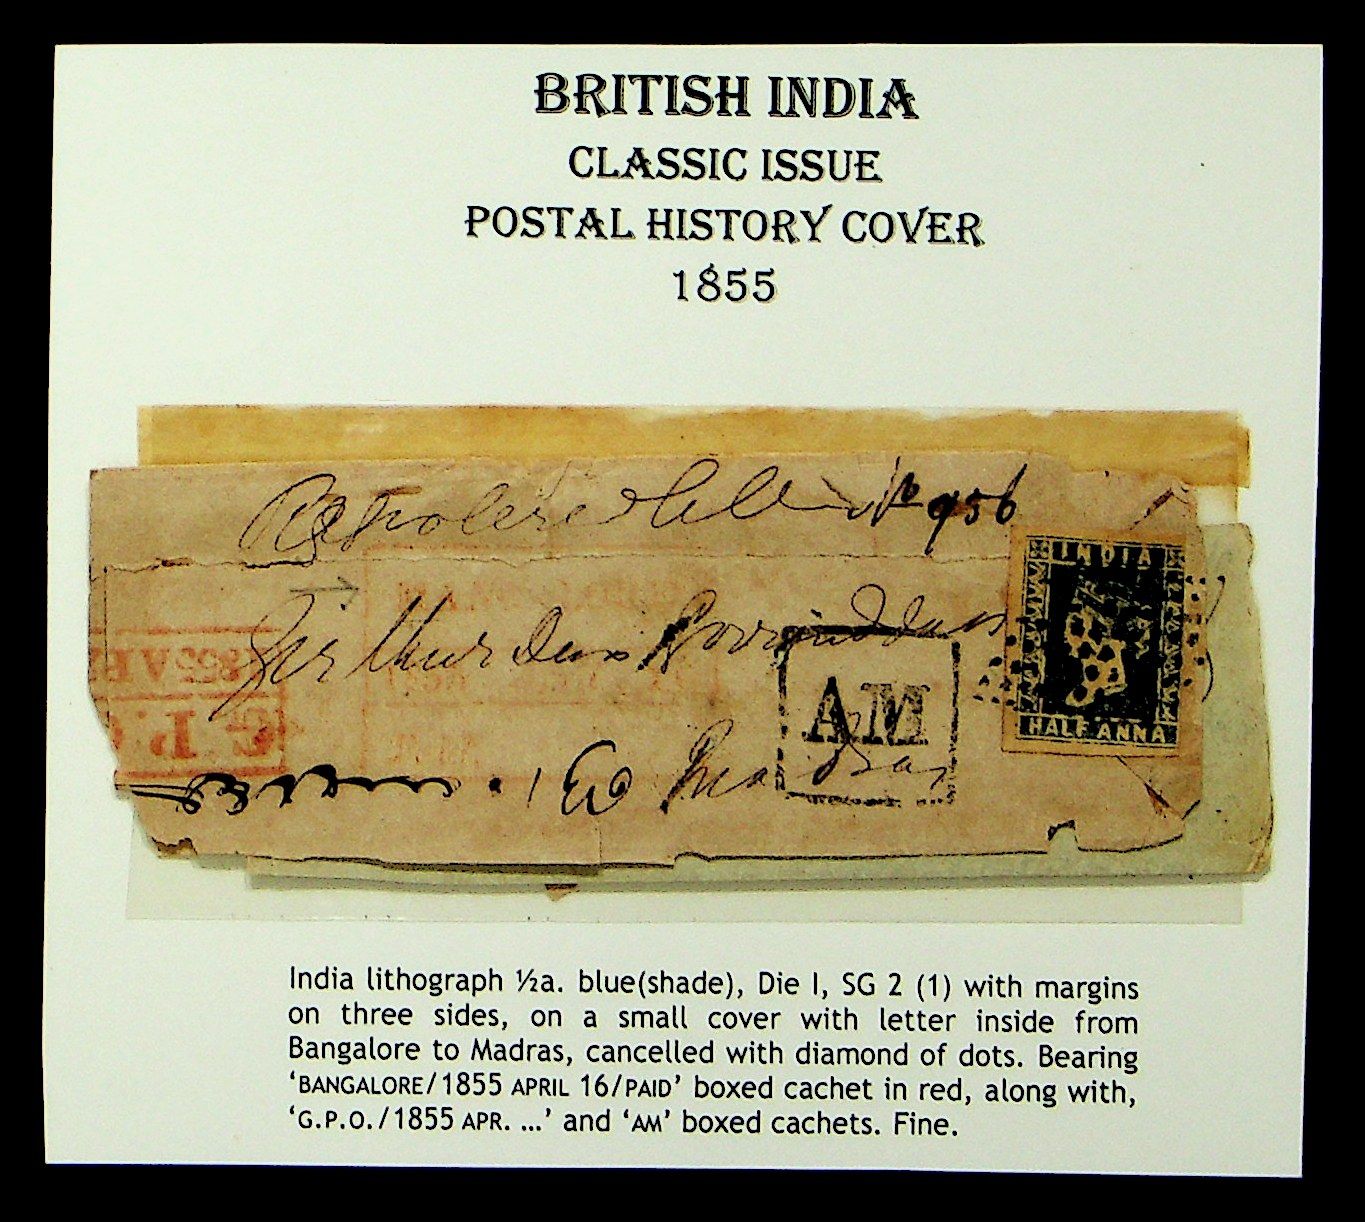 BRITISH INDIA
CLASSIC ISSUE
POSTAL HISTORY COVER
1855
No 956
INDIA
1855 AP
G.P.O
AM
HALF ANNA
To Madras
India lithograph ½a. blue(shade), Die I, SG 2 (1) with margins
on three sides, on a small cover with letter inside from
Bangalore to Madras, cancelled with diamond of dots. Bearing
‘BANGALORE/1855 APRIL 16/PAID’ boxed cachet in red, along with,
‘G.P.O./1855 APR. ...’ and ‘AM’ boxed cachets. Fine.